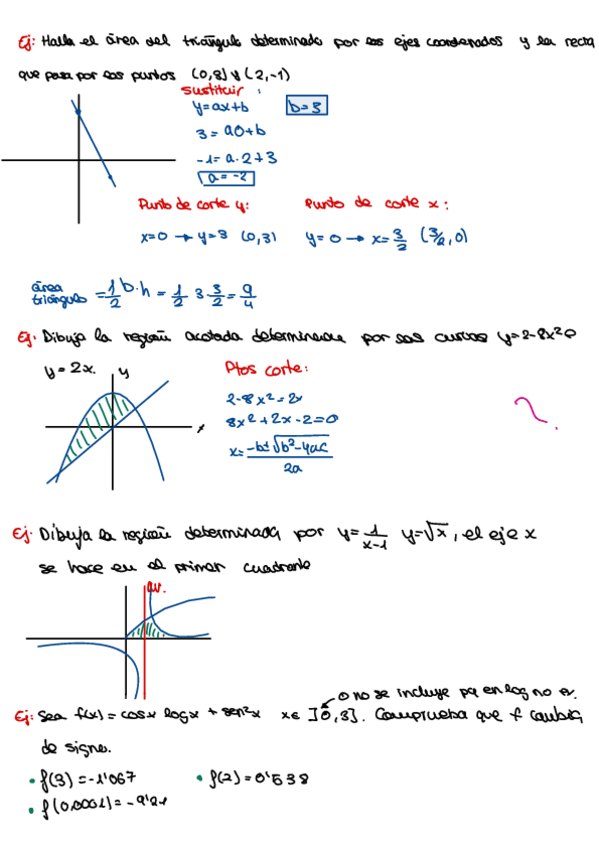 Ej: Halla el área del triángulo determinado por los ejes coordenados y la recta
que pasa por los puntos (0,3) y (2,-1)
sustituir :
y=ax+b b=3
3=a0+b
-1=a·2+3
a=-2
Punto de corte y: Punto de corte x:
x=0 → y=3 (0,3) y=0 → x=3/2 (3/2,0)
área triángulo = 1/2 b·h = 1/2 3·3/2 = 9/4
Ej. Dibuja la región acotada determinada por las curvas y=2-8x²
y=2x. y Ptos corte:
2-8x²=2x
8x²+2x-2=0
x
x=-b±√b²-4ac/2a
Ej. Dibuja la región determinada por y=1/x-1 y=√x, el eje x
se hace en el primer cuadrante
av.
0 no se incluye pq en log no
Ej: Sea f(x)=cosx logx + sen²x x∈ ]0,3]. Comprueba que f cambia
de signo.
• f(3)=-1'067 • f(2)=0'538
• f(0,0001)=-9'21